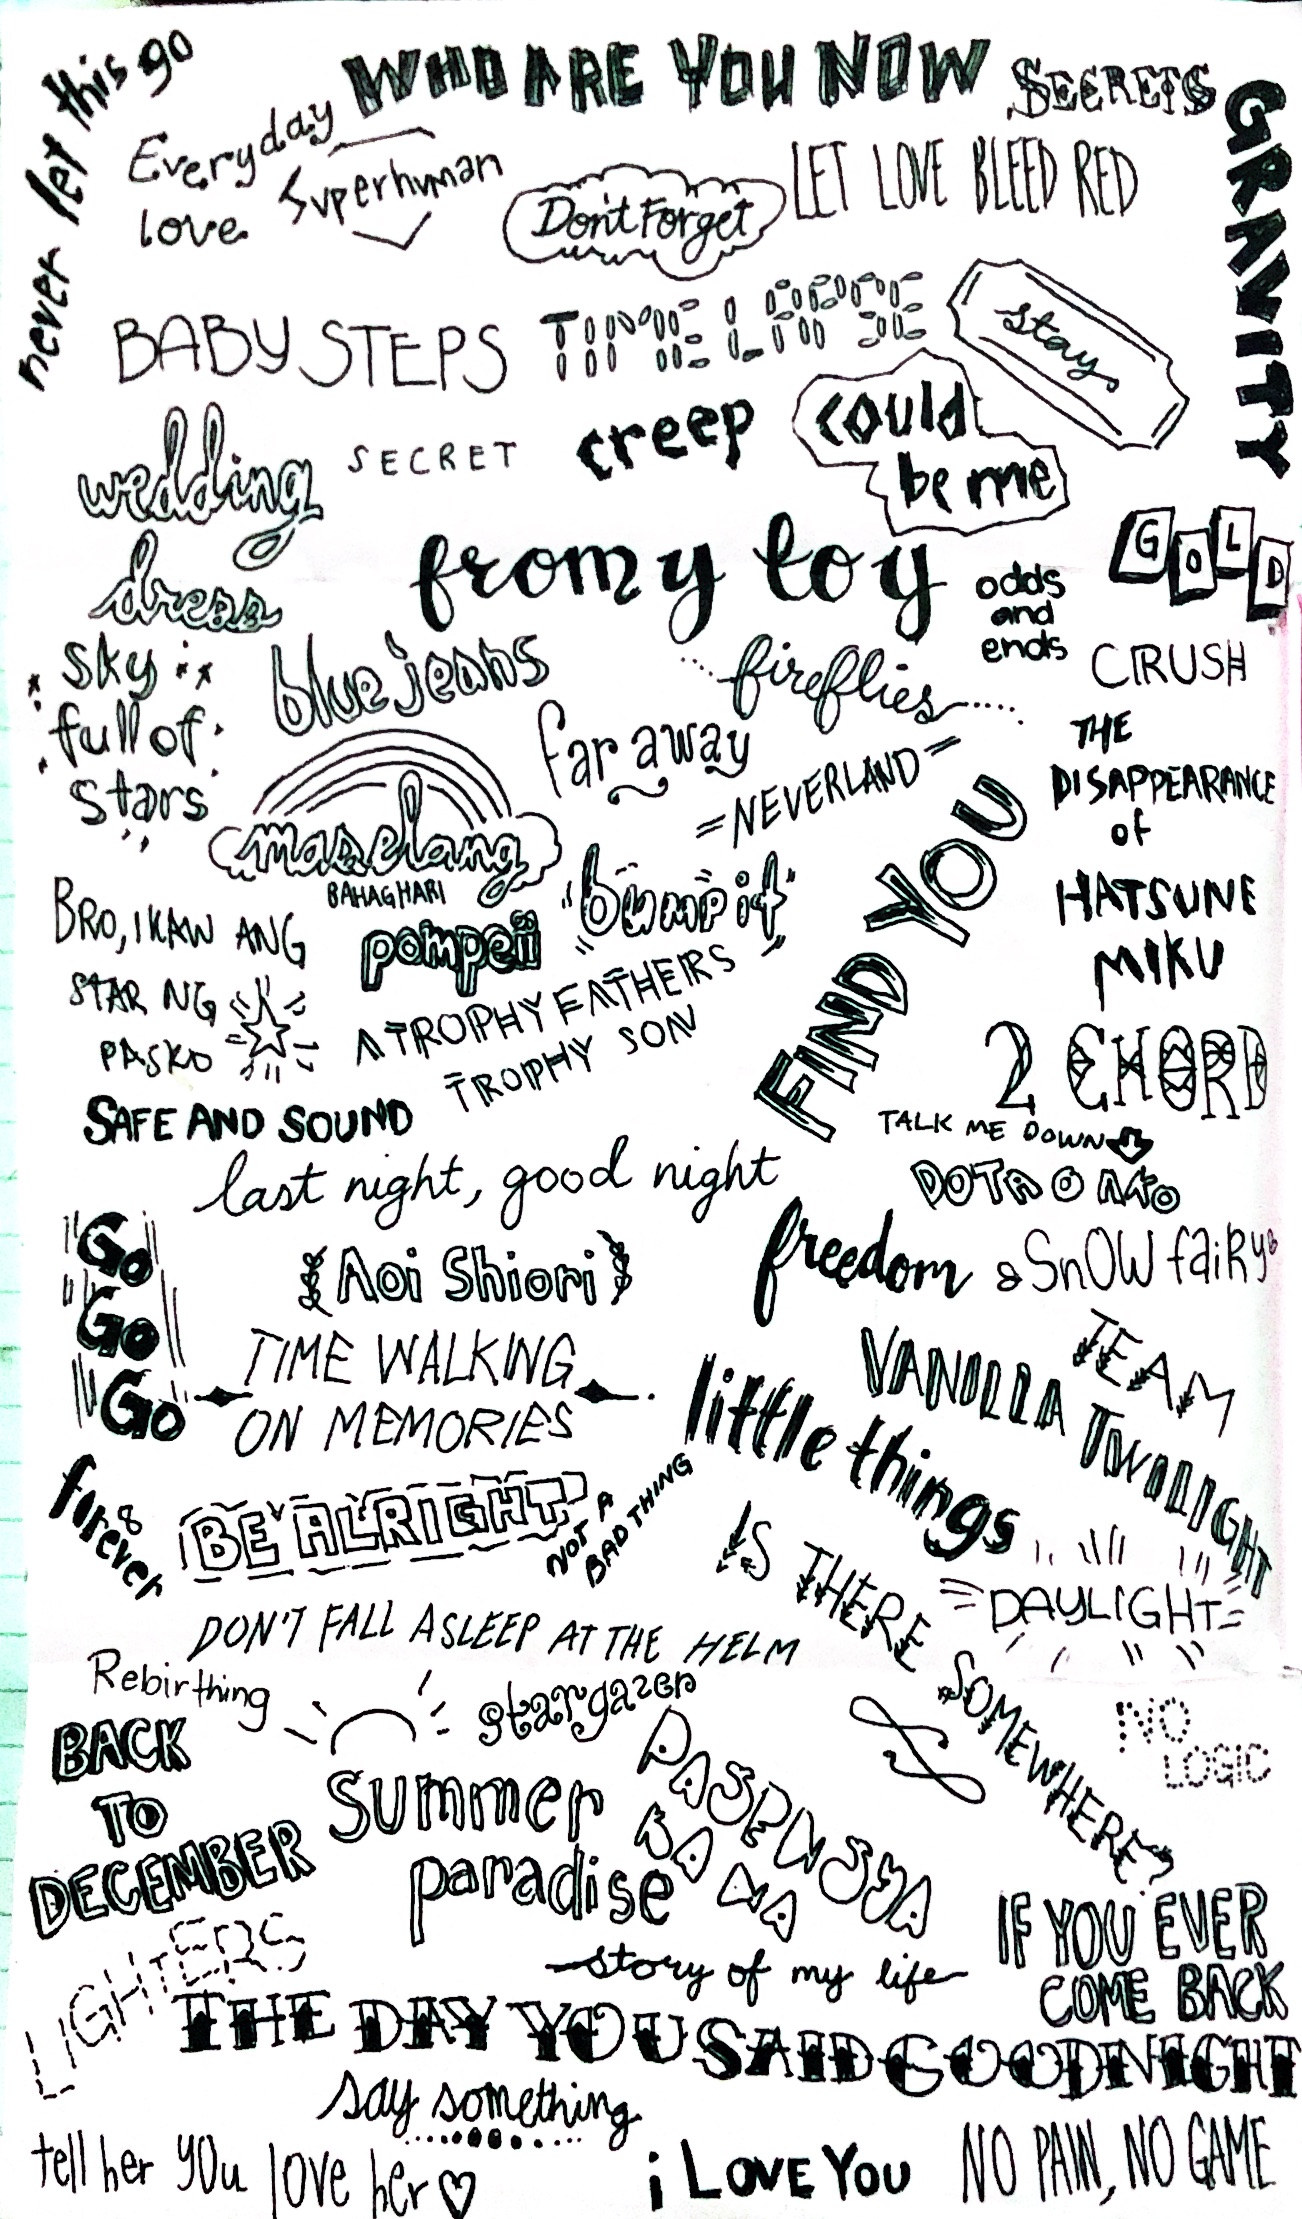 never let this go
WHO ARE YOU NOW
SECRETS
GRAVITY
Everyday
love
Superhuman
Don't Forget
LET LOVE BLEED RED
BABY STEPS
TIME LAPSE
stay
wedding
dress
SECRET
creep
could
be me
from y to y
odds
and
ends
GOLD
CRUSH
sky
full of
stars
blue jeans
fireflies
far away
=NEVERLAND=
maselang
BAHAGHARI
THE
DISAPPEARANCE
of
HATSUNE
MIKU
FIND YOU
BRO, IKAW ANG
STAR NG
PASKO
pompeii
"bump it"
A TROPHY FATHERS
TROPHY SON
2 CHORD
SAFE AND SOUND
TALK ME DOWN
DOTA O AKO
last night, good night
Go
Go
Go
Aoi Shiori
freedom
SnOW faiRy
TIME WALKING
ON MEMORIES
TEAM
VANILLA TWILIGHT
little things
forever
BE ALRIGHT
NOT A
BAD THING
IS THERE SOMEWHERE?
DAYLIGHT
DON'T FALL ASLEEP AT THE HELM
Rebirthing
stargazer
NO
LOGIC
BACK
TO
DECEMBER
summer
paradise
PASENSYA
KA NA
LIGHTERS
story of my life
IF YOU EVER
COME BACK
THE DAY YOU SAID GOODNIGHT
say something
tell her you love her
i LOVE YOU
NO PAIN, NO GAME